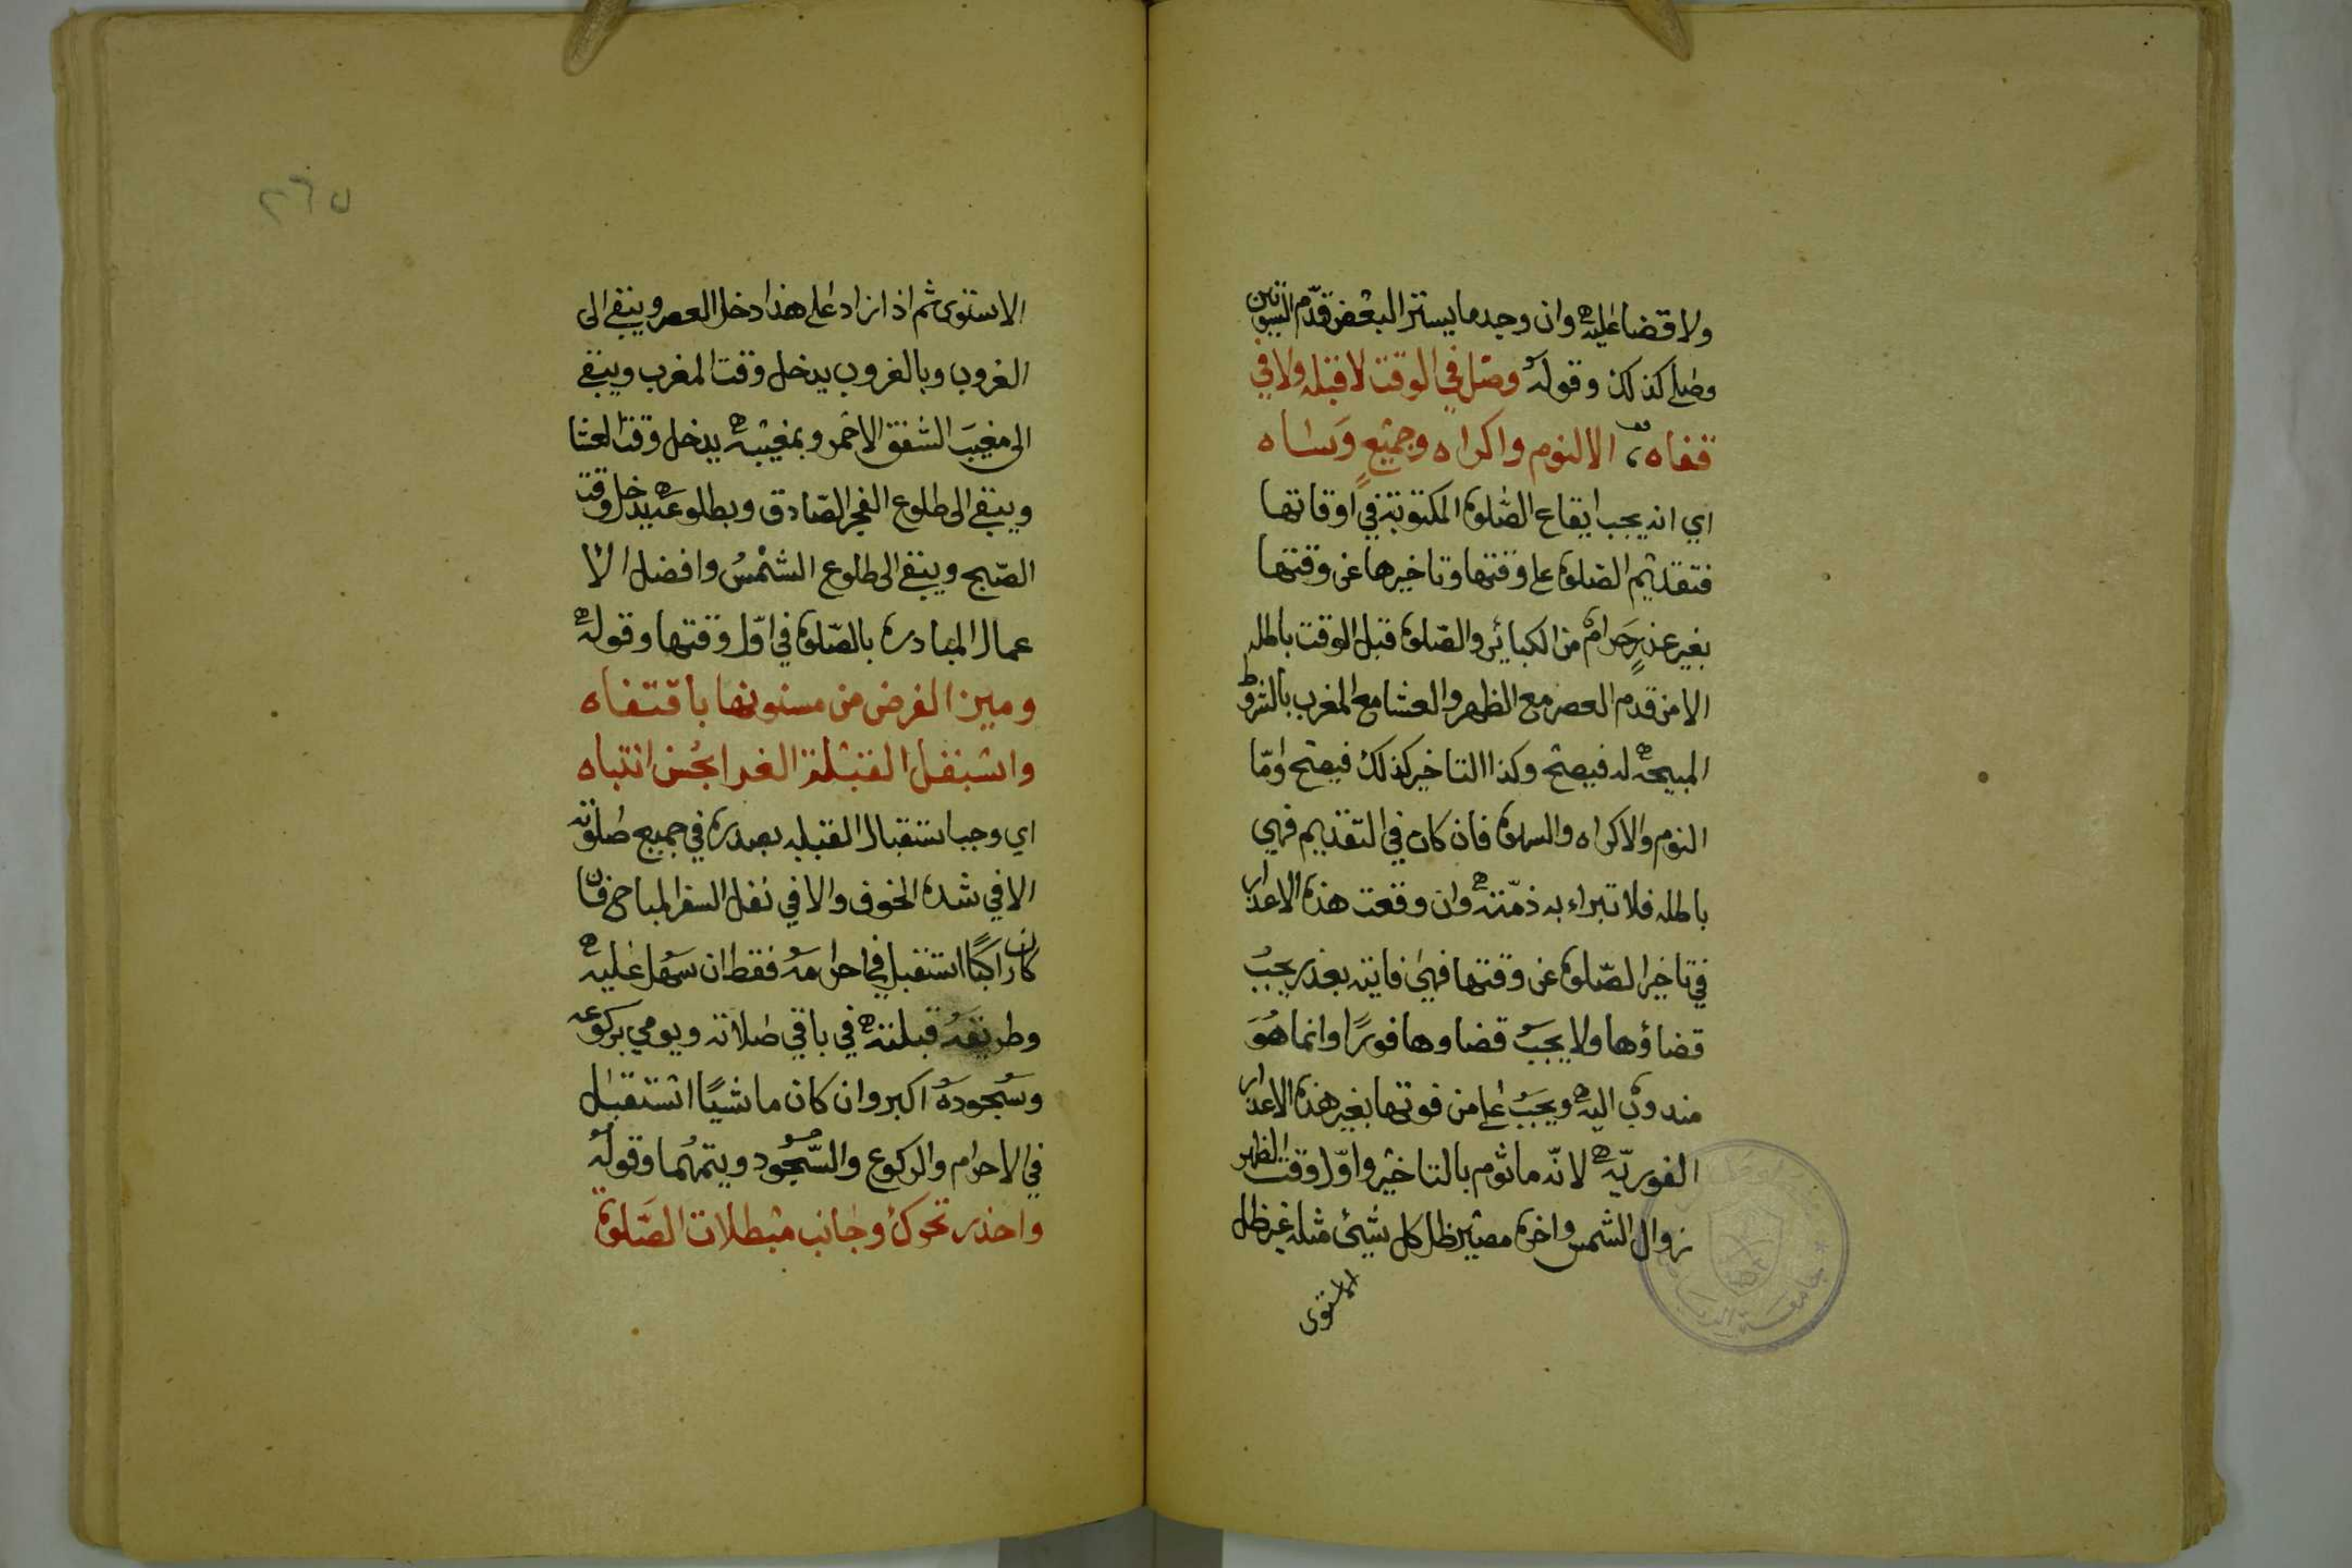 ولا قضا عليه وان وجد ما يستر البعض قدم السوتين
وصلى كذلك وقوله وصل في الوقت لا قبله ولا في
قفاه الا لنوم واكراه وجميع وساه
اي انه يجب ايقاع الصلوة المكتوبة في اوقاتها
فتقديم الصلوة على وقتها وتاخيرها عن وقتها
بغير عذر حرام من الكبائر والصلوة قبل الوقت باطله
الا من قدم العصر مع الظهر والعشا مع المغرب بالشروط
المبيحة له فيصح وكذا التاخير كذلك فيصح واما
النوم والاكراه والسهوة فان كان في التقديم فهي
باطله فلا تبراء به ذمته وان وقعت هذه الاعذار
في تاخير الصلوة عن وقتها فهي فايته بعذر يجب
قضاؤها ولا يجب قضاوها فورا وانما هو
مندوب اليه ويجب على من فوتها بغير هذه الاعذار
الفورية لانه ماثوم بالتاخير واول وقت الظهر
زوال الشمس واخره مصير ظل كل شيئ مثله غير ظل
الاستوى
٢٦٥
الاستوى ثم اذا زاد على هذا دخل العصر ويبقى الى
الغروب وبالغروب يدخل وقت المغرب ويبقى
الى مغيب الشفق الاحمر وبمغيبه يدخل وقت العشا
ويبقى الى طلوع الفجر الصادق وبطلوعه يدخل وقت
الصبح ويبقى الى طلوع الشمس وافضل الا
عمال المبادرة بالصلوة في اول وقتها وقوله
وميز الفرض من مسنونها باقتفاه
واستقبل القبلة الغرا بحسن انتباه
اي وجب استقبال القبله بصدره في جميع صلوته
الا في شدة الخوف والا في نفل السفر المباح فان
كان راكبا استقبل في احرامه فقط ان سهل عليه
وطريقه قبلته في باقي صلاته ويومي بركوعه
وسجوده اكبر وان كان ماشيا استقبل
في الاحرام والركوع والسجود ويتمهما وقوله
واحذر تحرك وجانب مبطلات الصلوة